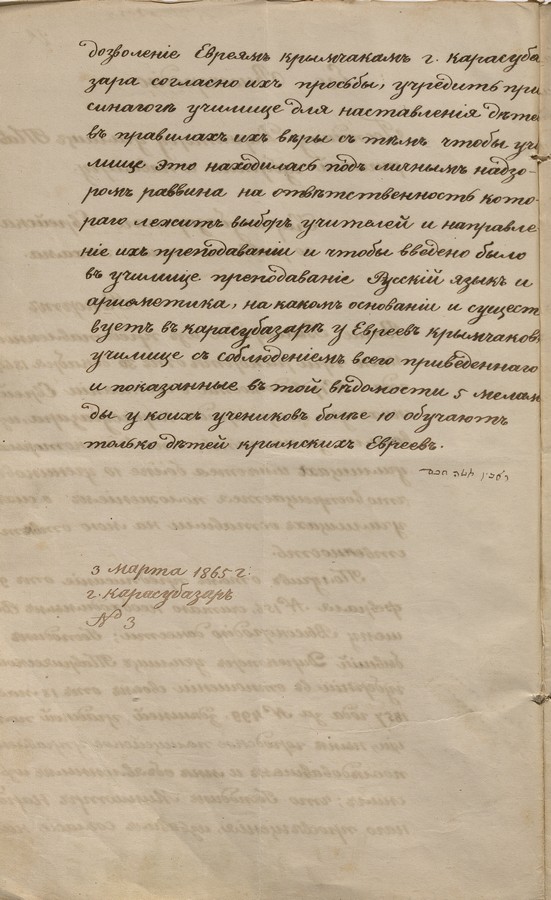 дозволеніе Евреямъ крымчакамъ г. карасуба
зара согласно ихъ просьбы, учредить при
синагогѣ училище для наставленія дѣте
въ правилахъ ихъ вѣры съ тѣмъ чтобы учи
лище это находилась подъ личнымъ надзо-
ромъ раввина на отвѣтственность кото-
раго лежитъ выборъ учителей и направле
ніе ихъ преподаваніи и чтобы введено было
въ училище преподаваніе Русскій языкъ и
ариѳметика, на какомъ основаніи и сущест
вуетъ въ карасубазарѣ у Евреевъ крымчаковъ
училище съ соблюденіемъ всего приведеннаго
и показанные въ той вѣдомости 5 мелам
ды у коихъ учениковъ болѣе 10 обучаютъ
только дѣтей крымскихъ Евреевъ.
3 Марта 1865 г.
г. Карасубазаръ
№ 3